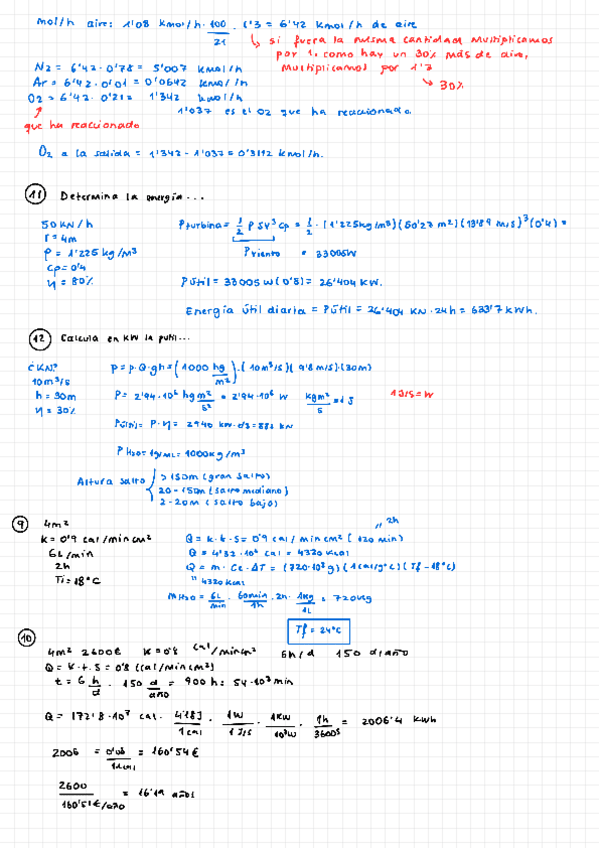 mol/h aire: 1'08 Kmol/h · 100/21 · 1'3 = 6'42 Kmol/h de aire
↳ si fuera la misma cantidad multiplicamos
por 1, como hay un 30% más de aire,
multiplicamos por 1'3
↳ 30%
N2 = 6'42 · 0'78 = 5'007 kmol/h
Ar = 6'42 · 0'01 = 0'0642 kmol/h
O2 = 6'42 · 0'21 = 1'342 kmol/h
1'037 es el O2 que ha reaccionado.
que ha reaccionado
O2 a la salida = 1'342 - 1'037 = 0'3192 kmol/h.
11 Determina la energía...
50 KN/h
r = 4m
ρ = 1'225 kg/m3
Cp = 0'4
η = 80%
Pturbina = 1/2 ρ S V3 Cp = 1/2 · (1'225kg/m3)(50'27 m2)(13'89 m/s)3 (0'4) =
Pviento = 33005W
Pútil = 33005 W (0'8) = 26'404 KW.
Energía útil diaria = Pútil = 26'404 KN · 24h = 633'7 kWh.
12 Calcula en KW la putil...
¿KN?
10 m3/s
h = 30m
η = 30%
P = ρ · Q · gh = (1000 kg/m2) · (10m3/s)(9'8 m/s) · (30m)
P = 2'94·10⁶ kg m2/s2 = 2'94·10⁶ W kgm2/s = 1 J
1J/s = W
Pútil = P · η = 2940 kW · 0'3 = 882 kN
ρ H2O = 1g/mL = 1000kg/m3
Altura salto
> 150m (gran salto)
20 - 150m (salto mediano)
2 - 20m (salto bajo)
9 4m2
K = 0'9 cal/min cm2
6L/min
2h
Ti = 18°C
,, 2h
Q = k · t · S = 0'9 cal/min cm2 (120 min)
Q = 4'32 · 10⁶ cal = 4320 Kcal
Q = m · Ce · ΔT = (720·10³g)(1cal/g°C)(Tf - 18°C)
,, 4320 Kcal
mH2O = 6L/min · 60min/1h · 2h · 1kg/1L = 720kg
Tf = 24°C
10
4m2 2600€ K = 0'8 cal/min cm2 6h/d 150 d/año
Q = K · t · S = 0'8 (cal/min cm2)
t = 6 h/d · 150 d/año = 900 h = 54·10³ min
Q = 1728 · 10⁶ cal · 4'18J/1cal · 1W/1J/s · 1KW/10³W · 1h/3600s = 2006'4 kWh
2006 = 0'08/1kcal = 160'54€
2600/160'51€/año = 16'19 años